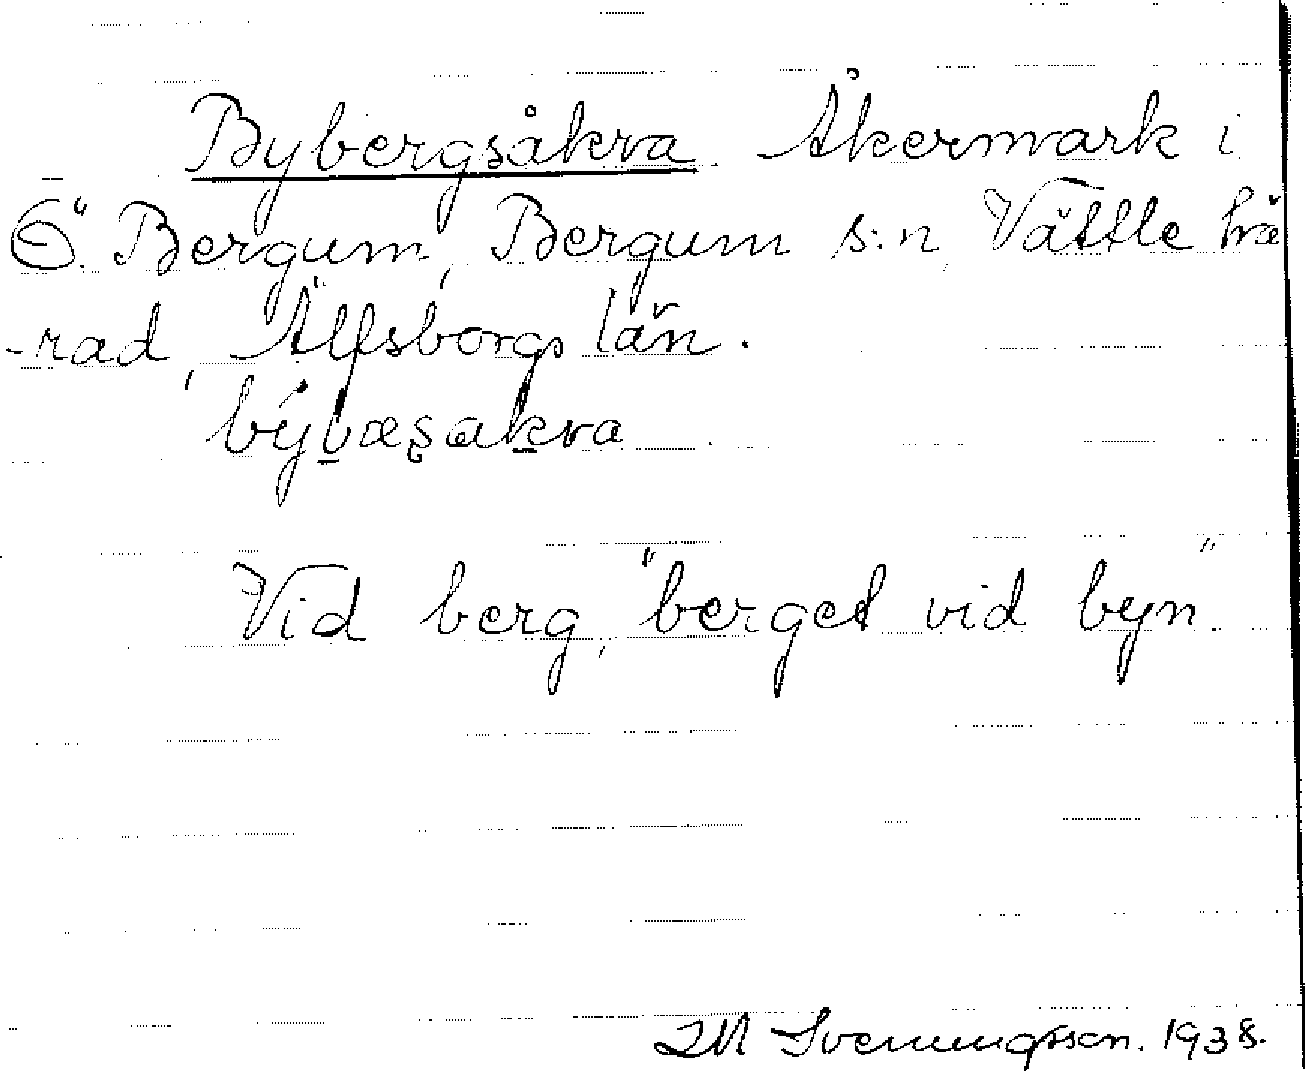 Bybergsåkra. Åkermark i
Ö. Bergum, Bergum s:n, Vättle hä
-rad, Älfsborgs län.
Vid berg, "berget vid byn".
IM Svenningsson. 1938.